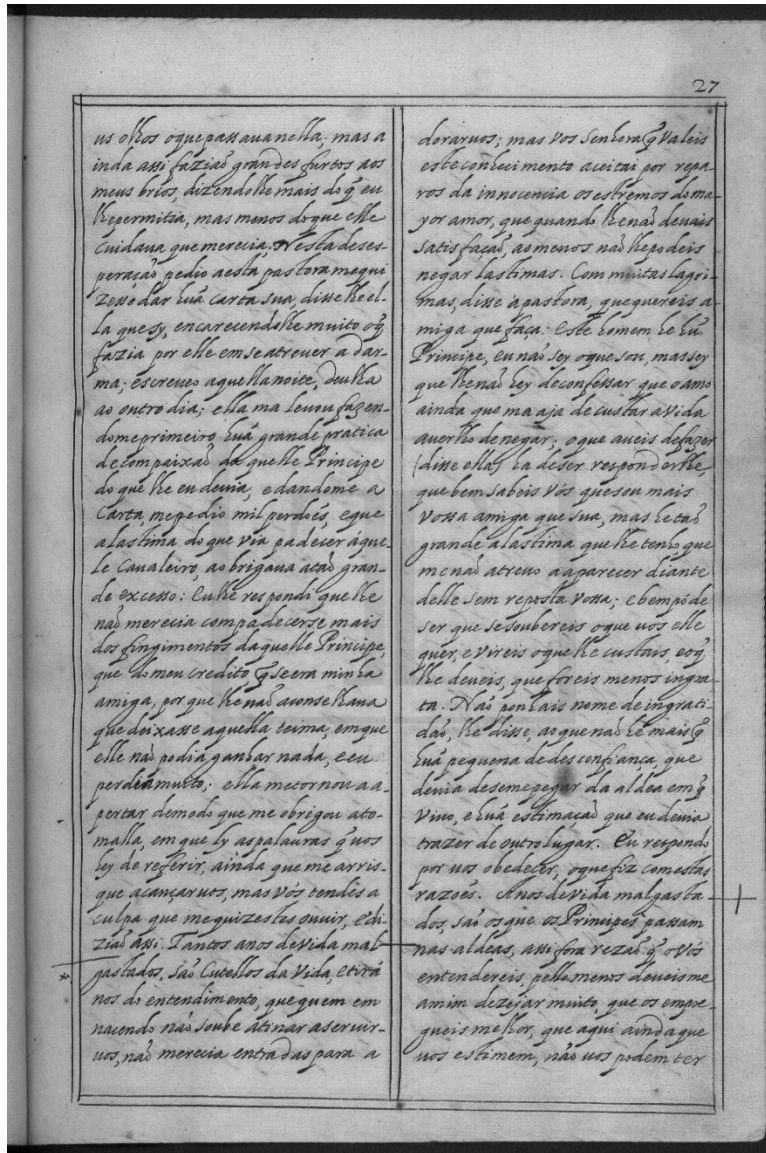 27
us olhos oque passaua nella; mas a
inda assi faziaõ grandes furtos aos
meus brios, dizendolhe mais do q̃ eu
lhe permitia, mas menos do que elle
cuidaua que merecia. Nesta deses-
peraçaõ pedio a esta pastora me qui
zesse dar huã carta sua, disse lhe el-
la que sy, encarecendolhe muito oq̃
fazia por elle em se atreuer a dar-
ma; escreueo aquella noite, deulha
ao outro dia; ella ma leuou fazen-
dome primeiro huã grande pratica
de compaixaõ da quelle Principe
do que lhe eu deuia, e dandome a
carta, me pedio mil perdoẽs, e que
a lastima do que via padecer aque-
le Caualeiro, ao brigaua a taõ gran-
de excesso: Eu lhe respondi que lhe
naõ merecia compadecerse mais
dos fingimentos da quelle Principe,
que do meu credito q̃ se era minha
amiga, por que lhe naõ aconselhaua
que deixasse aquella teima, em que
elle naõ podia ganhar nada, e eu
perdia muito; ella me tornou a a-
pertar de modo que me obrigou a to-
malla, em que ly as palauras q̃ uos
hey de referir, ainda que me arris-
que a cançaruos, mas vós tendes a
culpa que me quizestes ouuir, e di
ziaõ assi. Tantos anos de vida mal
gastados, saõ Cutellos da vida, e tirá
nos do entendimento, que quem em
nacendo naõ soube atinar a seruir-
uos, naõ merecia entradas para a
doraruos; mas vos senhora q̃ valeis
este conhecimento aceitai por repa-
ros da innocencia os estremos do ma-
yor amor, que quando lhe naõ deuais
satisfaçaõ, ao menos naõ lhe podeis
negar lastimas. Com muitas lagri-
mas, disse à pastora, que quereis a-
miga que faça: este homem he hũ
Principe, eu naõ sey o que sou, mas sey
que lhe naõ hey de confessar que o amo
ainda que ma aja de custar a vida
auerlho de negar; o que aueis de fazer
(disse ella) ha de ser responderlhe,
que bem sabeis vós que sou mais
vossa amiga que sua, mas he taõ
grande a lastima que lhe tenho que
me naõ atreuo a aparecer diante
delle sem reposta vossa; e bem póde
ser que se soubereis o que uos elle
quer, e vireis o que lhe custais, e oq̃
lhe deueis, que foreis menos ingra-
ta. Naõ ponhais nome de ingrati
daõ, lhe disse, ao que naõ he mais q̃
huã pequena de desconfiança, que
deuia de se me pegar da aldea em q̃
viuo, e huã estimacaõ que eu deuia
trazer de outro lugar. Eu respondo
por uos obedecer, o que fiz com estas
razoẽs. Anos de vida mal gasta
dos, saõ os que os Principes passam
nas aldeas, assi fora rezaõ q̃ o vós
entendereis, pello menos deueisme
a mim dezejar muito, que os empre-
gueis melhor, que aqui ainda que
uos estimem, naõ uos podem ter